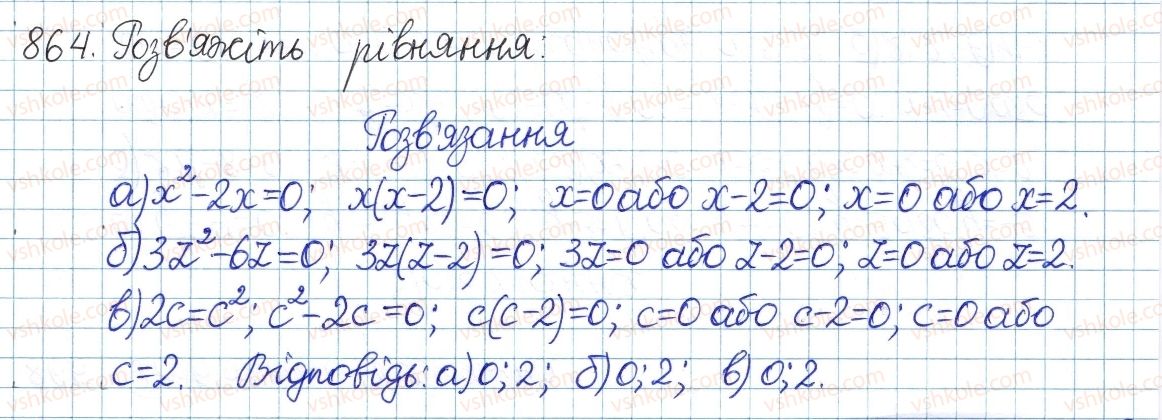 864. Розв'яжіть рівняння:
Розв'язання
а) x²-2x=0; x(x-2)=0; x=0 або x-2=0; x=0 або x=2.
б) 3z²-6z=0; 3z(z-2)=0; 3z=0 або z-2=0; z=0 або z=2.
в) 2c=c²; c²-2c=0; c(c-2)=0; c=0 або c-2=0; c=0 або
c=2. Відповідь: а) 0; 2; б) 0; 2; в) 0; 2.